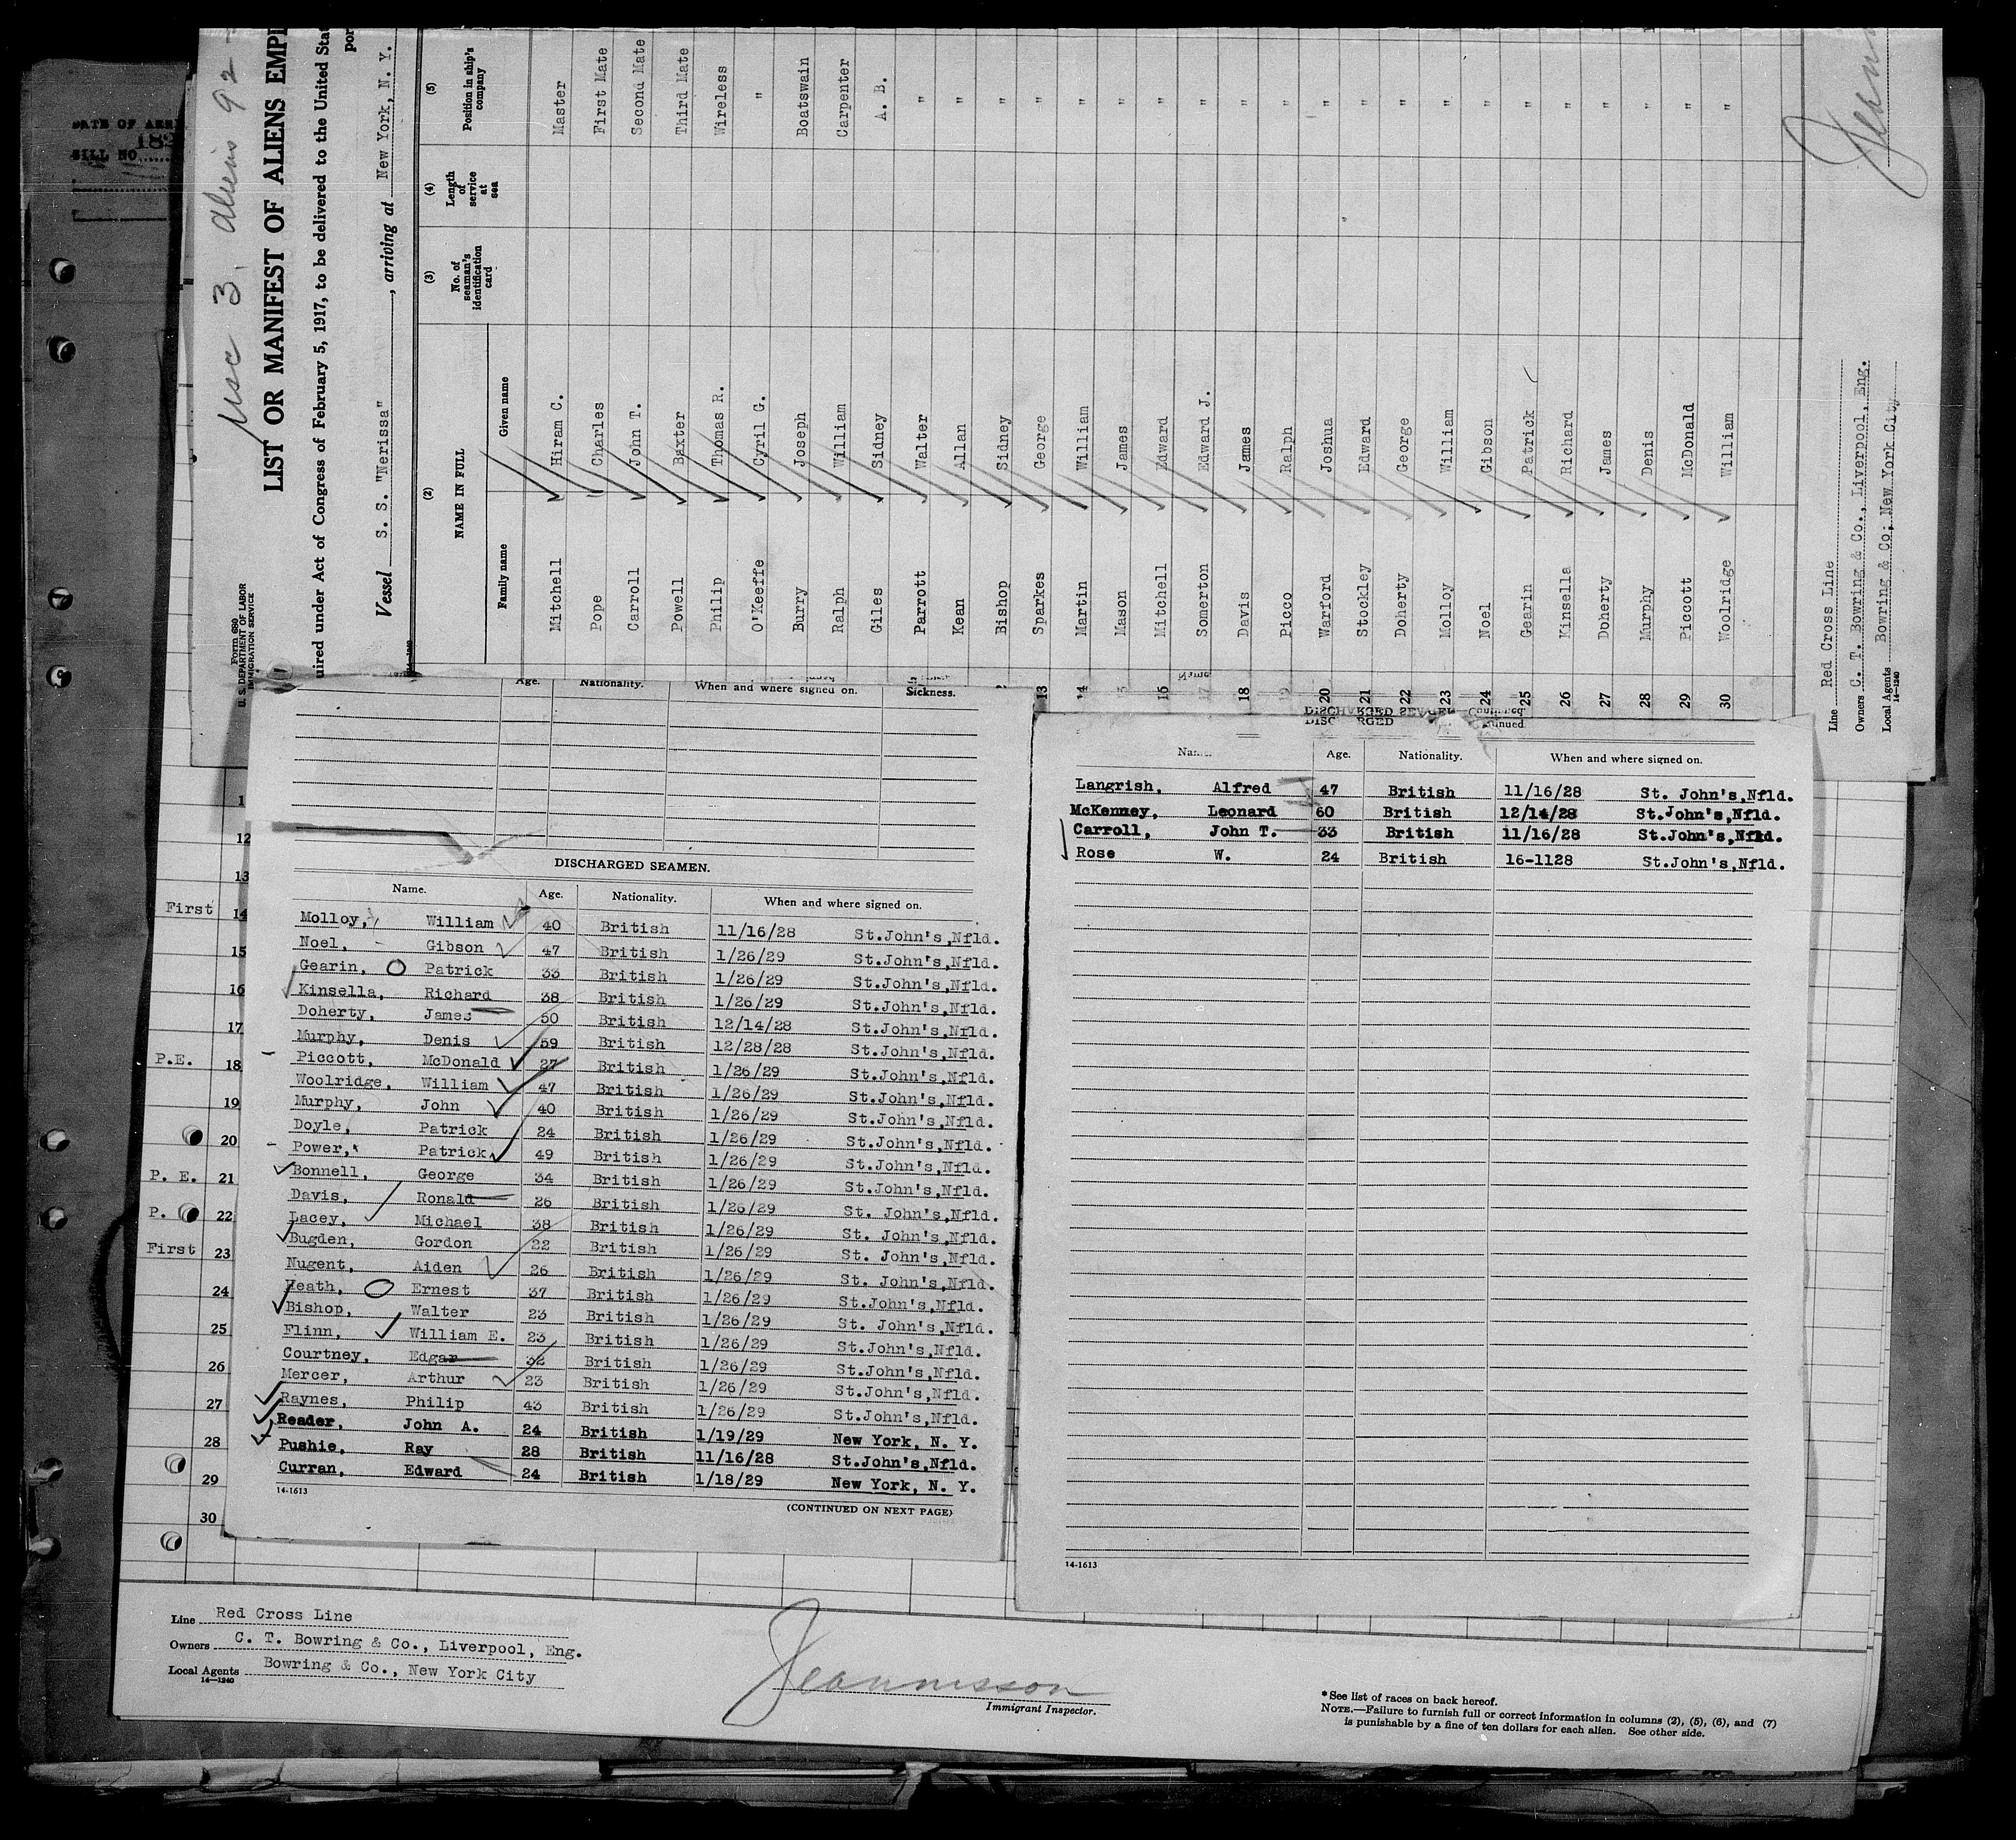 DATE OF
BILL NO
Form 680
U. S. DEPARTMENT OF LABOR
IMMIGRATION SERVICE
LIST OR MANIFEST OF ALIENS EMPL
uired under Act of Congress of February 5, 1917, to be delivered to the United Sta
Vessel S. S. "Nerissa", arriving at New York, N. Y.
(2) (3) (4) (5)
NAME IN FULL No. of seaman's identification card Length of service at sea Position in ship's company
Family name Given name
Mitchell Hiram C. Master
Pope Charles First Mate
Carroll John T. Second Mate
Powell Baxter Third Mate
Philip Thomas R. Wireless
O'Keeffe Cyril G. "
Burry Joseph Boatswain
Ralph William Carpenter
Giles Sidney A. B.
Parrott Walter "
Kean Allan "
Bishop Sidney "
13 Sparkes George "
14 Martin William "
Mason James "
16 Mitchell Edward "
17 Somerton Edward J. "
18 Davis James "
19 Picco Ralph "
20 Warford Joshua "
21 Stockley Edward "
22 Doherty George "
23 Molloy William "
24 Noel Gibson "
25 Gearin Patrick "
26 Kinsella Richard "
27 Doherty James "
28 Murphy Denis "
29 Piccott McDonald "
30 Woolridge William "
Line Red Cross Line
Owners C. T. Bowring & Co., Liverpool, Eng.
Local Agents Bowring & Co; New York City
14-1240
Age. Nationality. When and where signed on. Sickness.
DISCHARGED SEAMEN.
Name. Age. Nationality. When and where signed on.
Molloy, William 40 British 11/16/28 St.John's,Nfld.
Noel, Gibson 47 British 1/26/29 St.John's,Nfld.
Gearin, Patrick 33 British 1/26/29 St.John's,Nfld.
Kinsella, Richard 38 British 1/26/29 St.John's,Nfld.
Doherty, James 50 British 12/14/28 St.John's,Nfld.
Murphy, Denis 59 British 12/28/28 St.John's,Nfld.
Piccott, McDonald 27 British 1/26/29 St.John's,Nfld.
Woolridge, William 47 British 1/26/29 St.John's,Nfld.
Murphy, John 40 British 1/26/29 St.John's,Nfld.
Doyle, Patrick 24 British 1/26/29 St.John's,Nfld.
Power, Patrick 49 British 1/26/29 St.John's,Nfld.
Bonnell, George 34 British 1/26/29 St.John's,Nfld.
Davis, Ronald 26 British 1/26/29 St. John's,Nfld.
Lacey, Michael 38 British 1/26/29 St. John's,Nfld.
Bugden, Gordon 22 British 1/26/29 St. John's,Nfld.
Nugent, Aiden 26 British 1/26/29 St. John's,Nfld.
Heath, Ernest 37 British 1/26/29 St.John's,Nfld.
Bishop, Walter 23 British 1/26/29 St. John's,Nfld.
Flinn, William E. 23 British 1/26/29 St.John's,Nfld.
Courtney, Edgar 32 British 1/26/29 St.John's,Nfld.
Mercer, Arthur 23 British 1/26/29 St.John's,Nfld.
Raynes, Philip 43 British 1/26/29 St.John's,Nfld.
Reader, John A. 24 British 1/19/29 New York, N. Y.
Pushie, Ray 28 British 11/16/28 St.John's,Nfld.
Curran, Edward 24 British 1/18/29 New York, N. Y.
14-1613
(CONTINUED ON NEXT PAGE)
Name. Age. Nationality. When and where signed on.
Langrish, Alfred 47 British 11/16/28 St. John's,Nfld.
McKenney, Leonard 60 British 12/14/28 St.John's,Nfld.
Carroll, John T. 33 British 11/16/28 St.John's,Nfld.
Rose W. 24 British 16-1128 St.John's,Nfld.
14-1613
12
13
First 14
15
16
17
P.E. 18
19
20
P. E. 21
P. 22
First 23
24
25
26
27
28
29
30
Line Red Cross Line
Owners C. T. Bowring & Co., Liverpool, Eng.
Local Agents Bowring & Co., New York City
14-1240
Immigrant Inspector.
*See list of races on back hereof.
NOTE.—Failure to furnish full or correct information in columns (2), (5), (6), and (7)
is punishable by a fine of ten dollars for each alien. See other side.